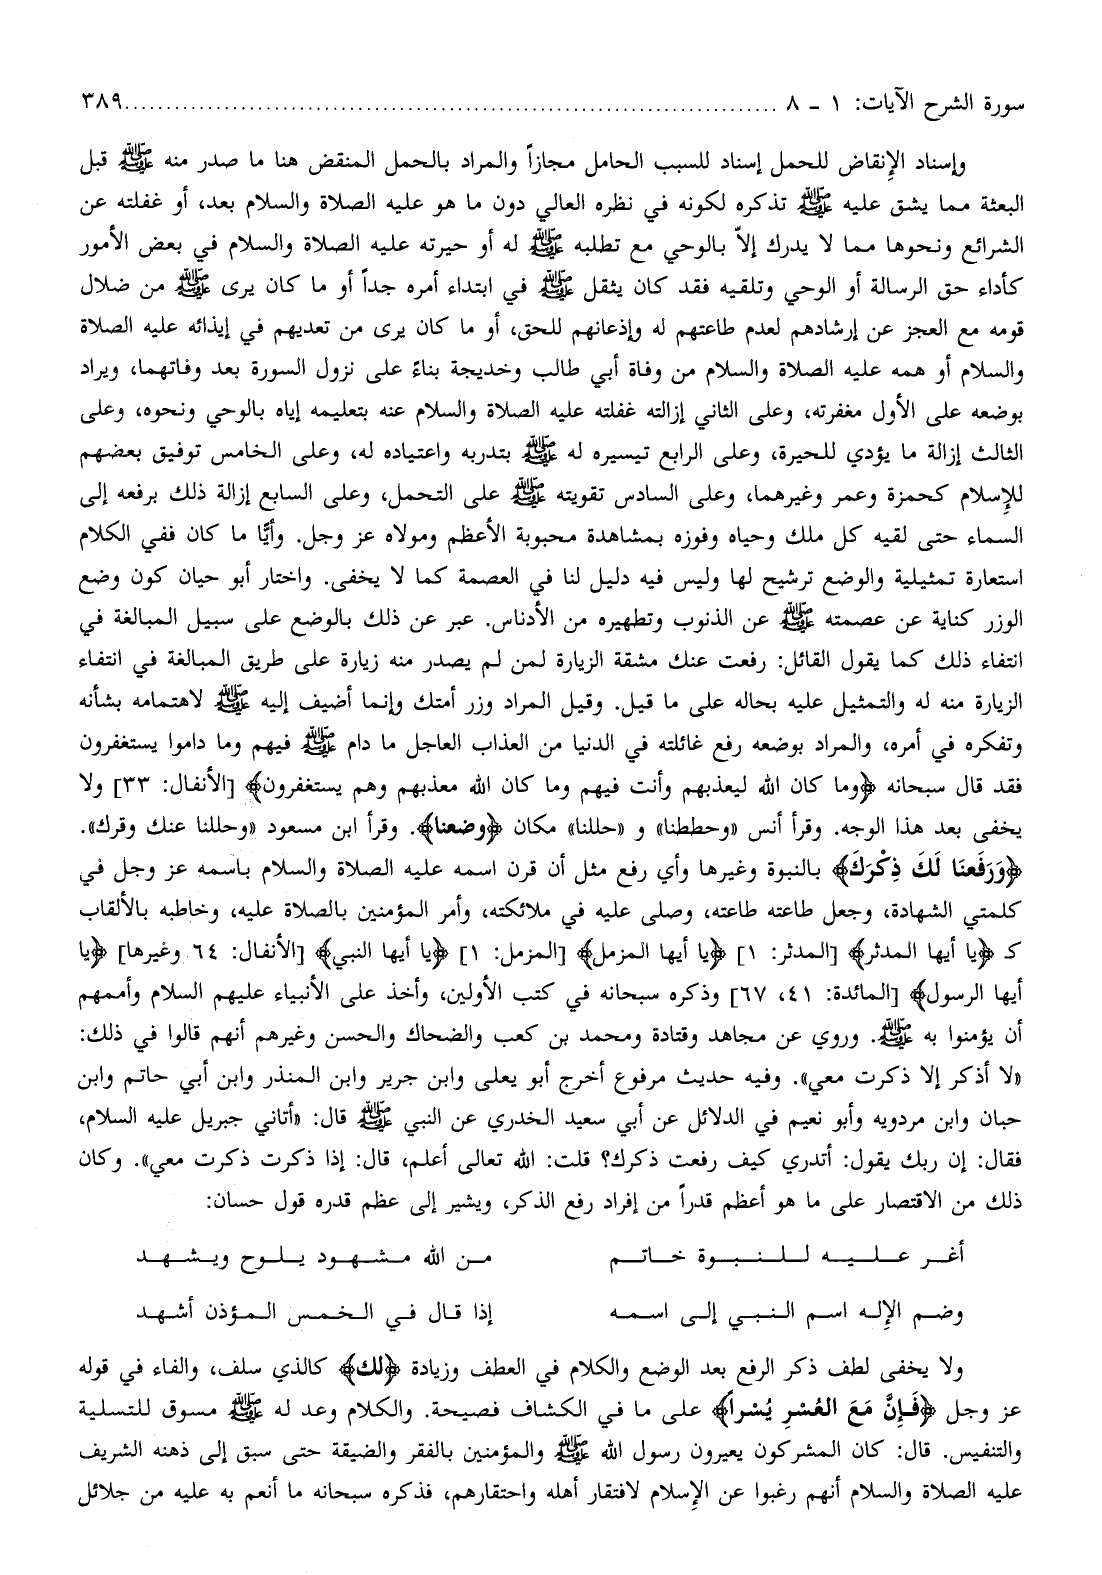 سورة الشرح الآيات: ١ - ٨ ................................................................................ ٣٨٩
وإسناد الإنقاض للحمل إسناد للسبب الحامل مجازاً والمراد بالحمل المنقض هنا ما صدر منه ﷺ قبل
البعثة مما يشق عليه ﷺ تذكره لكونه في نظره العالي دون ما هو عليه الصلاة والسلام بعد، أو غفلته عن
الشرائع ونحوها مما لا يدرك إلاّ بالوحي مع تطلبه ﷺ له أو حيرته عليه الصلاة والسلام في بعض الأمور
كأداء حق الرسالة أو الوحي وتلقيه فقد كان يثقل ﷺ في ابتداء أمره جداً أو ما كان يرى ﷺ من ضلال
قومه مع العجز عن إرشادهم لعدم طاعتهم له وإذعانهم للحق، أو ما كان يرى من تعديهم في إيذائه عليه الصلاة
والسلام أو همه عليه الصلاة والسلام من وفاة أبي طالب وخديجة بناءً على نزول السورة بعد وفاتهما، ويراد
بوضعه على الأول مغفرته، وعلى الثاني إزالته غفلته عليه الصلاة والسلام عنه بتعليمه إياه بالوحي ونحوه، وعلى
الثالث إزالة ما يؤدي للحيرة، وعلى الرابع تيسيره له ﷺ بتدربه واعتياده له، وعلى الخامس توفيق بعضهم
للإسلام كحمزة وعمر وغيرهما، وعلى السادس تقويته ﷺ على التحمل، وعلى السابع إزالة ذلك برفعه إلى
السماء حتى لقيه كل ملك وحياه وفوزه بمشاهدة محبوبة الأعظم ومولاه عز وجل. وأيًّا ما كان ففي الكلام
استعارة تمثيلية والوضع ترشيح لها وليس فيه دليل لنا في العصمة كما لا يخفى. واختار أبو حيان كون وضع
الوزر كناية عن عصمته ﷺ عن الذنوب وتطهيره من الأدناس. عبر عن ذلك بالوضع على سبيل المبالغة في
انتفاء ذلك كما يقول القائل: رفعت عنك مشقة الزيارة لمن لم يصدر منه زيارة على طريق المبالغة في انتفاء
الزيارة منه له والتمثيل عليه بحاله على ما قيل. وقيل المراد وزر أمتك وإنما أضيف إليه ﷺ لاهتمامه بشأنه
وتفكره في أمره، والمراد بوضعه رفع غائلته في الدنيا من العذاب العاجل ما دام ﷺ فيهم وما داموا يستغفرون
فقد قال سبحانه ﴿وما كان الله ليعذبهم وأنت فيهم وما كان الله معذبهم وهم يستغفرون﴾ [الأنفال: ٣٣] ولا
يخفى بعد هذا الوجه. وقرأ أنس «وحططنا» و «حللنا» مكان ﴿وضعنا﴾. وقرأ ابن مسعود «وحللنا عنك وقرك».
﴿وَرَفَعنَا لَكَ ذِكْرَكَ﴾ بالنبوة وغيرها وأي رفع مثل أن قرن اسمه عليه الصلاة والسلام باسمه عز وجل في
كلمتي الشهادة، وجعل طاعته طاعته، وصلى عليه في ملائكته، وأمر المؤمنين بالصلاة عليه، وخاطبه بالألقاب
كـ ﴿يا أيها المدثر﴾ [المدثر: ١] ﴿يا أيها المزمل﴾ [المزمل: ١] ﴿يا أيها النبي﴾ [الأنفال: ٦٤ وغيرها] ﴿يا
أيها الرسول﴾ [المائدة: ٤١، ٦٧] وذكره سبحانه في كتب الأولين، وأخذ على الأنبياء عليهم السلام وأممهم
أن يؤمنوا به ﷺ. وروي عن مجاهد وقتادة ومحمد بن كعب والضحاك والحسن وغيرهم أنهم قالوا في ذلك:
«لا أذكر إلا ذكرت معي». وفيه حديث مرفوع أخرج أبو يعلى وابن جرير وابن المنذر وابن أبي حاتم وابن
حبان وابن مردويه وأبو نعيم في الدلائل عن أبي سعيد الخدري عن النبي ﷺ قال: «أتاني جبريل عليه السلام،
فقال: إن ربك يقول: أتدري كيف رفعت ذكرك؟ قلت: الله تعالى أعلم، قال: إذا ذكرت ذكرت معي». وكان
ذلك من الاقتصار على ما هو أعظم قدراً من إفراد رفع الذكر، ويشير إلى عظم قدره قول حسان:
أغر عليه للنبوة خاتم من الله مشهود يلوح ويشهد
وضم الإله اسم النبي إلى اسمه إذا قال في الخمس المؤذن أشهد
ولا يخفى لطف ذكر الرفع بعد الوضع والكلام في العطف وزيادة ﴿لك﴾ كالذي سلف، والفاء في قوله
عز وجل ﴿فَإِنَّ مَعَ العُسْرِ يُسْراً﴾ على ما في الكشاف فصيحة. والكلام وعد له ﷺ مسوق للتسلية
والتنفيس. قال: كان المشركون يعيرون رسول الله ﷺ والمؤمنين بالفقر والضيقة حتى سبق إلى ذهنه الشريف
عليه الصلاة والسلام أنهم رغبوا عن الإسلام لافتقار أهله واحتقارهم، فذكره سبحانه ما أنعم به عليه من جلائل